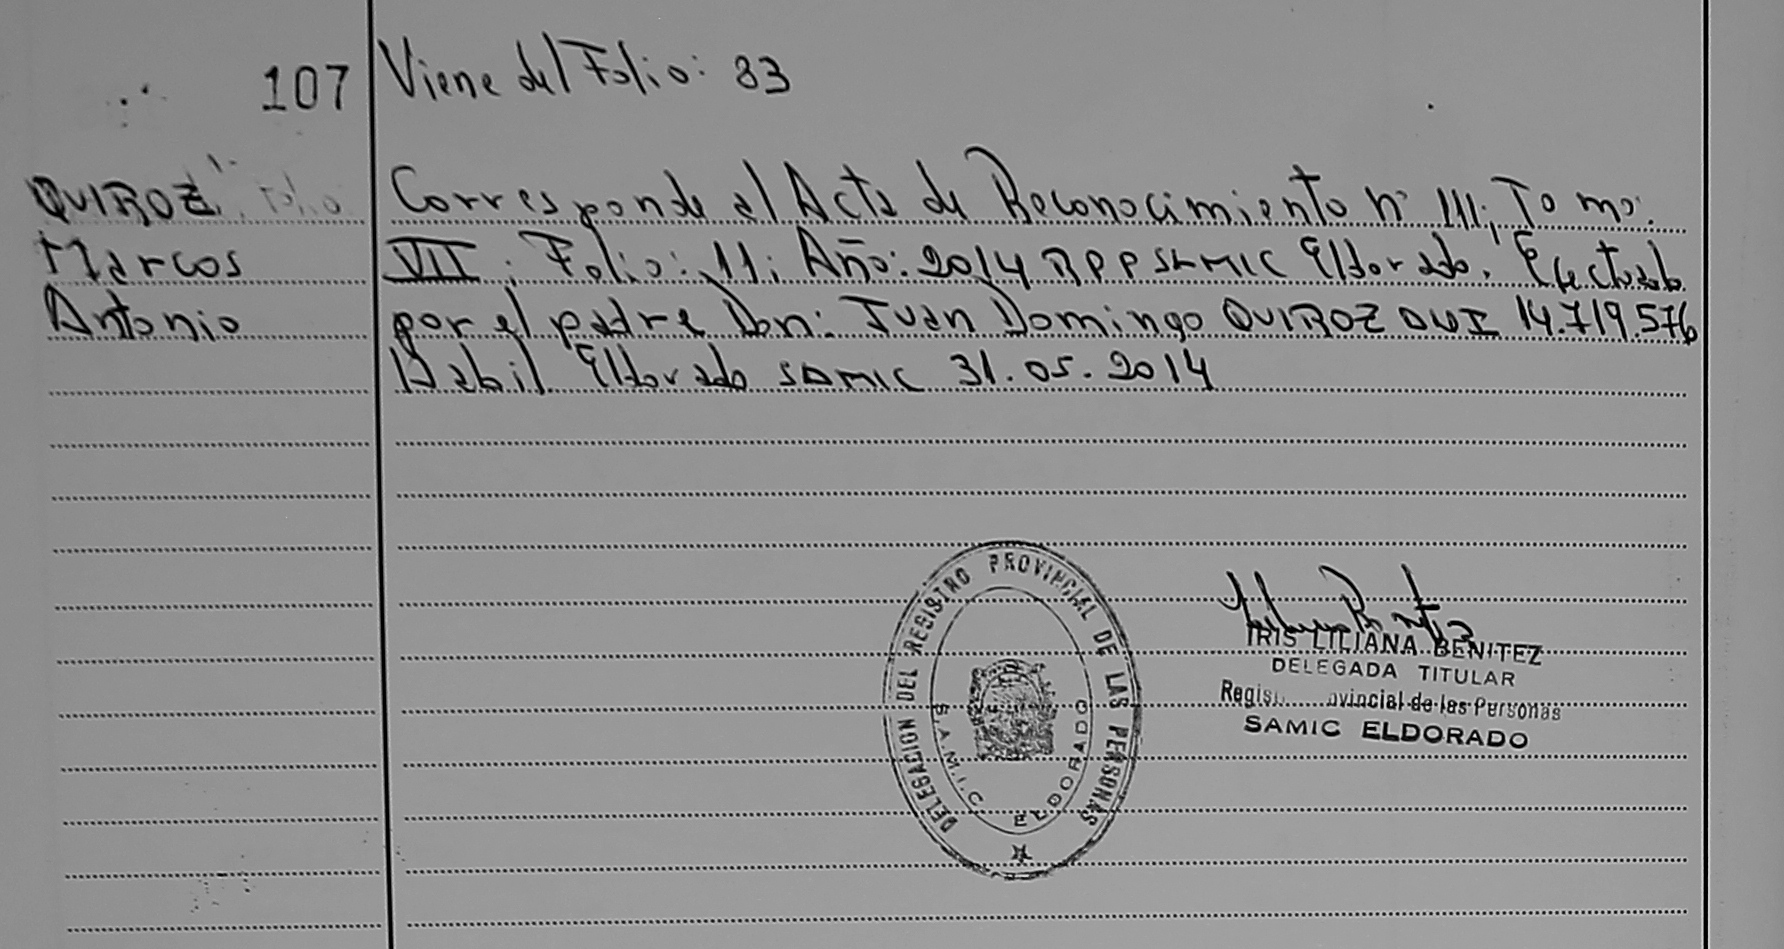 107 Viene del Folio: 83
QUIROZ Corresponde al Acta de Reconocimiento nº 111; Tomo:
Marcos VII; Folio: 11; Año: 2014 RPP SAMIC Eldorado. Efectuado
Antonio por el padre Don: Juan Domingo QUIROZ DNI 14.719.576
Habil Eldorado SAMIC 31.05.2014
DELEGACION DEL REGISTRO PROVINCIAL DE LAS PERSONAS
S.A.M.I.C. ELDORADO
IRIS LILIANA BENITEZ
DELEGADA TITULAR
Regis ovincial de las Personas
SAMIC ELDORADO